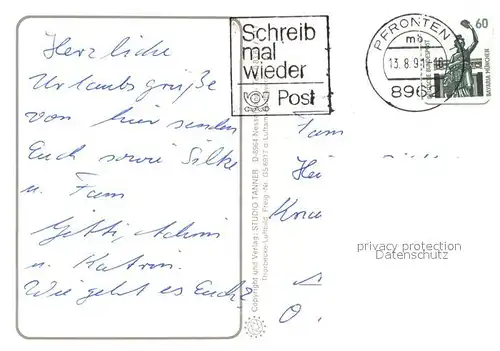 Herzliche
Urlaubsgrüße
von hier senden
Euch sowie Silke
u. Fam
Gitti, Achim
u. Katrin.
Wie geht es Euch?
Schreib
mal
wieder
Post
PFRONTEN
mb
13.8.9
896
60
BAVARIA MÜNCHEN
Copyright und Verlag: STUDIO TANNER D-8964 Nesse
Fam
privacy protection
Datenschutz
O.